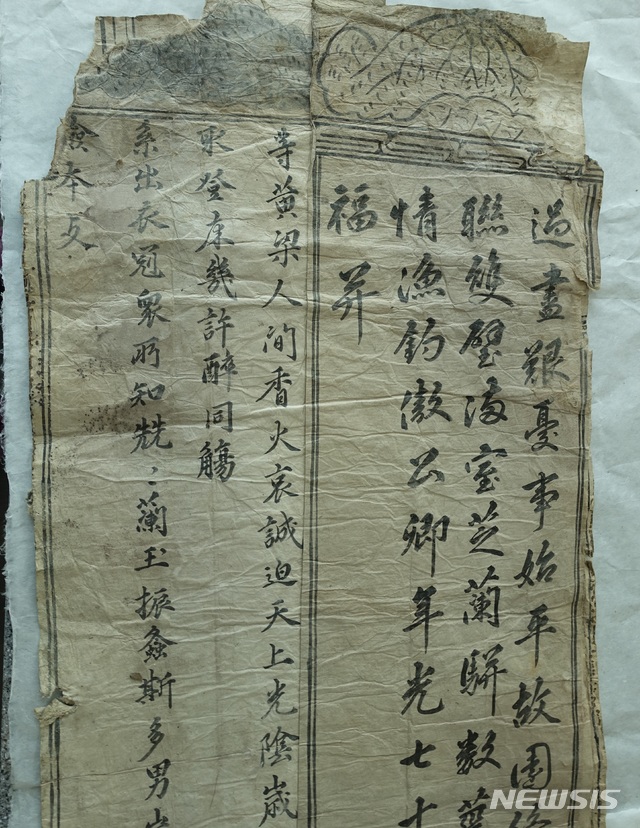 過盡艱憂事始平故園
聯雙璧滿室芝蘭駢數
情漁釣傲公卿年光七十
福並
等黃梁人間香火哀誠迫天上光陰歲
來登床幾許醉同觴
系出衣冠衆所知兟〻蘭玉振螽斯多男
本支
NEWSIS